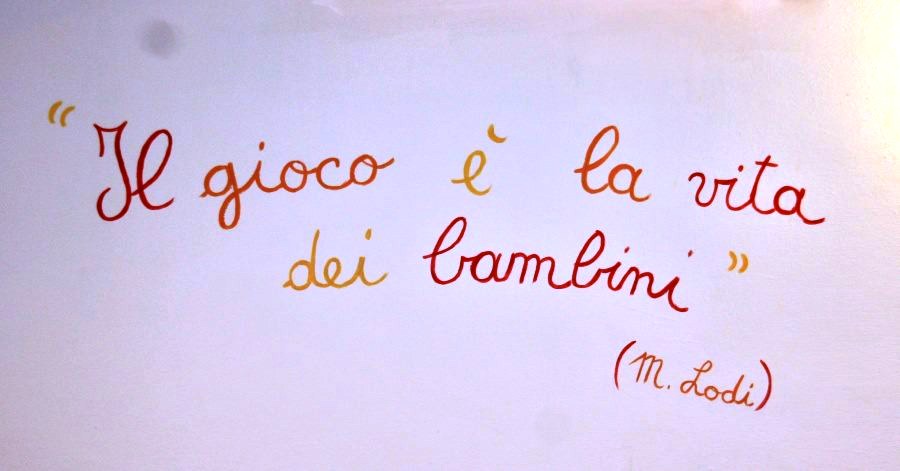 “Il gioco è la vita
dei bambini”
(M. Lodi)